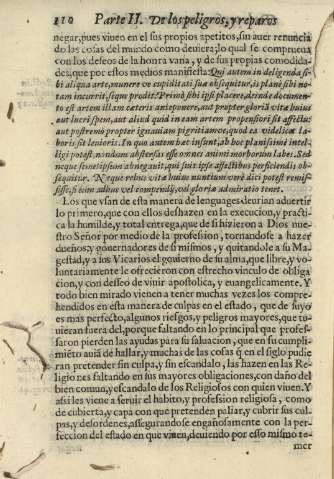 110 Parte II. De los peligros, y reparos
negar, pues viuen en el sus propios apetitos, sin auer renuncia
do las cosas del mundo como deuiera; lo qual se comprueua
con los deseos de la honra vana, y de sus propias comodida-
des, que por estos medios manifiesta: Qui autem in deligenda si-
bi aliqua arte, munere ve cupiditati suæ obsequitur, is planè sibi no-
tam incurrit, seque prodit. Primò sibi ipsi placere, deinde documen-
to est artem illam cæteris anteponere, aut propter gloriã vitæ huius
aut lucri spem, aut aliud quid in eam artem propensiori sit affectu:
aut postremò propter ignauiam pigritiamque, quod ea videlicæ la-
boris sit lenioris. In quo autem hæc insunt, ab hoc planissimè intel-
ligi potest nondum abstersas esse omnes animi morborum labes. Sed
neque semetipsum abnegauit, qui suis ipse affectibus perficiendis ob-
sequitur. Neque rebus vitæ huius nuntium verè dici potest remis-
sisse, si eum adhuc vel compendij, vel gloriæ admiratio tenet.
Los que vsan de esta manera de lenguages deurian aduertir
lo primero, que con ellos deshazen en la execucion, y practi-
ca la humilde, y total entrega, que de si hizieron a Dios nue-
stro Señor por medio de la profession, tornandose a hazer
dueños, y gouernadores de si mismos, y quitandole a su Ma-
gestad, y a sus Vicarios el gouierno de su alma, que libre, y vo-
luntariamente le ofrecieron con estrecho vinculo de obliga
cion, y con desseo de viuir apostolica, y euangelicamente. Y
todo bien mirado vienen a tener muchas vezes los compre-
hendidos en esta manera de culpas en el estado, que de suyo
es mas perfecto, algunos riesgos, y peligros mayores, que tu-
uieran fuera del, porque faltando en lo principal que profes-
saron pierden las ayudas para su saluacion, que en su cumpli-
mièto auiã de hallar, y muchas de las cosas q̃ en el siglo pudie
ran pretender sin culpa, y sin escandalo, las hazen en las Re-
ligiones faltando en sus mayores obligaciones, con daño del
bien comun, y escandalo de los Religiosos con quien viuen. Y
assi les viene a seruir el habito, y profession religiosa, como
de cubierta, y capa con que pretenden paliar, y cubrir sus cul-
pas, y desordenes, assegurandose engañosamente con la per-
feccion del estado en que viuen, deuiendo por esso mismo te-
mer